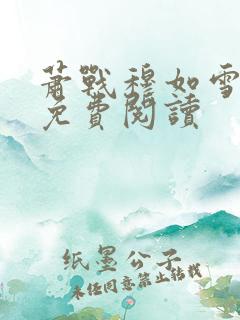 蕭戰穆如雪
免費閱讀
纸墨公子
未经同意禁止转载